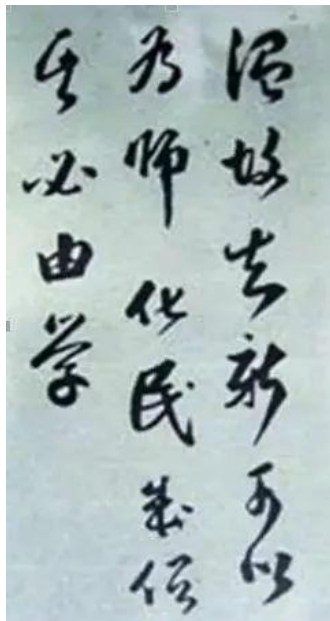 温故知新可以
为师化民成俗
其必由学